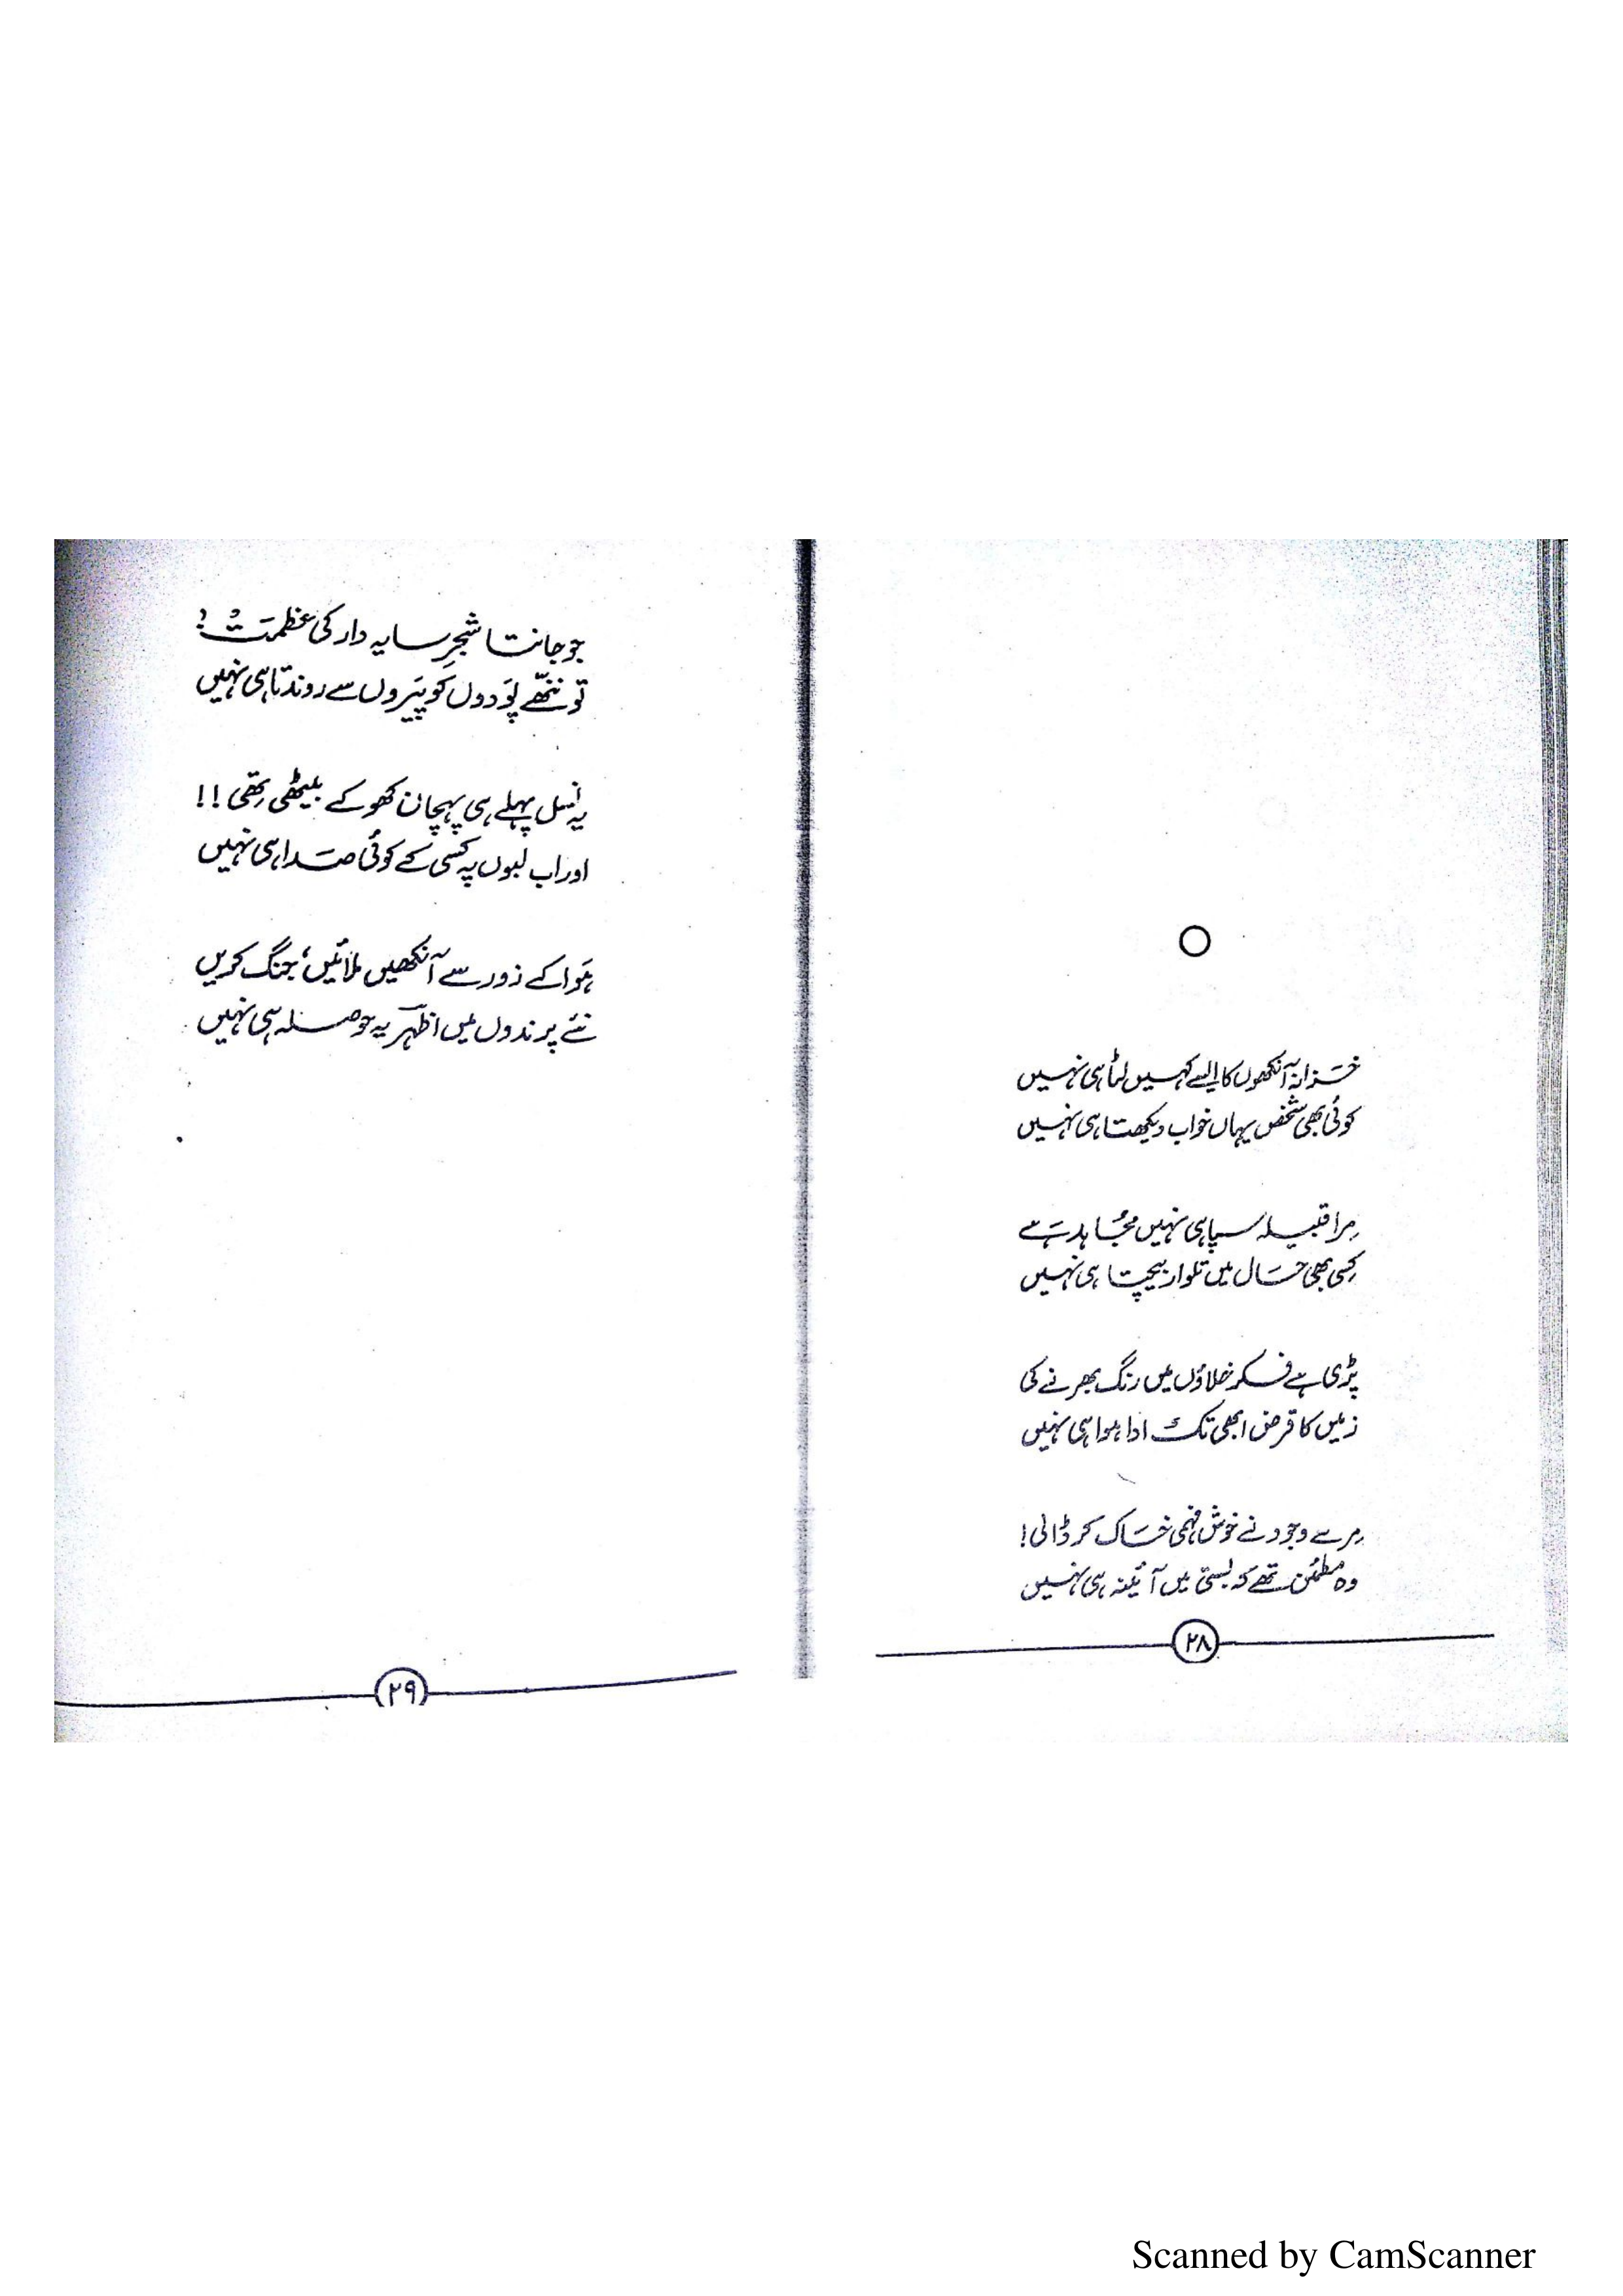 خزانہ آنکھوں کا ایسے کہیں لٹا ہی نہیں
کوئی بھی شخص یہاں خواب دیکھتا ہی نہیں
مِرا قبیلہ سپاہی نہیں مُجاہد ہے
کِسی بھی حال میں تلوار بیچتا ہی نہیں
پڑی ہے فکر خلاؤں میں رنگ بھرنے کی
زمیں کا قرض ابھی تک ادا ہوا ہی نہیں
مِرے وجود نے خوش فہمی خاک کر ڈالی!
وہ مطمئن تھے کہ بستی میں آئینہ ہی نہیں
۲۸
جو جانتا شجرِ سایہ دار کی عظمت
تو ننھّے پَودوں کو پَیروں سے روندتا ہی نہیں
یہ نسل پہلے ہی پہچان کھو کے بیٹھی تھی!!
اور اب لبوں پہ کسی کے کوئی صَدا ہی نہیں
ہَوا کے زور سے آنکھیں ملائیں، جنگ کریں
نئے پرندوں میں اظہرؔ یہ حوصلہ ہی نہیں
۲۹
Scanned by CamScanner